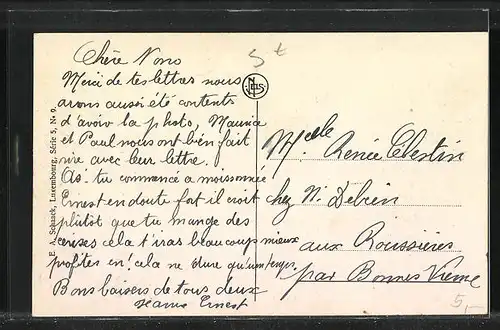 Chère Nono
Merci de tes lettres nous
avons aussi été contents
d'avoir la photo, Maurice
et Paul nous ont bien fait
rire avec leur lettre.
As tu commencé a moissonnée
Ernest en doute fort il croit
plutôt que tu mange des
cerises cela t'iras beaucoup mieux
profites en! cela ne dure qu'un temps
Bons baisers de tous deux
Ernest
5
NELS
E. A. Schaack, Luxembourg, Série 5, No 9.
Melle Renée Celestin
chez Mr Debien
aux Roussières
par Bonnes Vienne
5,-